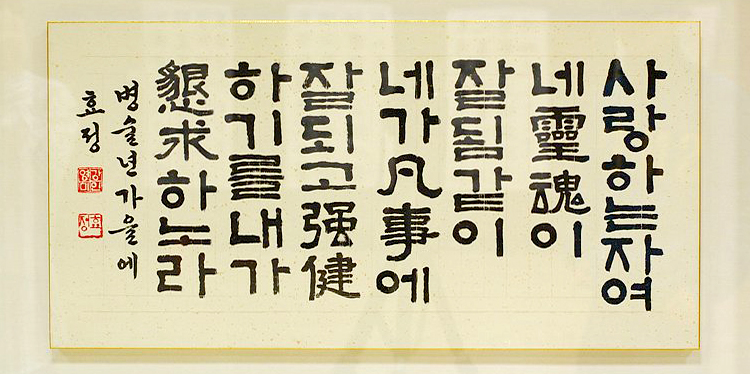 사랑하는자여
네靈魂이
잘됨같이
네가凡事에
잘되고强健
하기를내가
懇求하노라
병술년가을에
효정